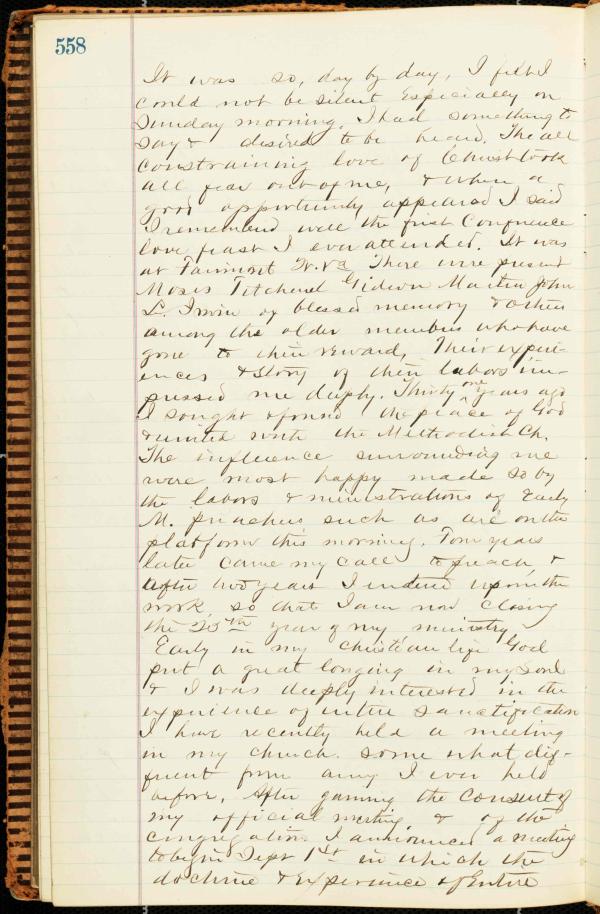 558
It was so, day by day, I felt I
could not be silent Especially on
Sunday morning. I had something to
say & desired to be heard. The all
constraining love of Christ took
all fear out of me, & when a
good opportunity appeared I said
I remembered well the first Conference
love feast I ever attended. It was
at Fairmont W. Va There were present
Moses Titchenel Gideon Martin John
L. Irwin of blessed memory & others
among the older members who have
gone to their reward, Their experi-
ences & story of their labors im-
pressed me deeply. Thirty one years ago
I sought & found the peace of God
& united with the Methodist Ch.
The influence surrounding me
were most happy made so by
the labors & ministrations of Early
M. preachers such as are on the
platform this morning. Four years
later came my call to preach, &
after two years I entered upon the
work, so that I am now closing
the 25th year of my ministry
Early in my christian life God
put a great longing in my soul
& I was deeply interested in the
experience of entire sanctification
I have recently held a meeting
in my church. some what dif-
ferent from any I ever held
before. After gaining the consent of
my official meeting & of the
congregation I announced a meeting
to begin Sept 1st in which the
doctrine & experience of Entire